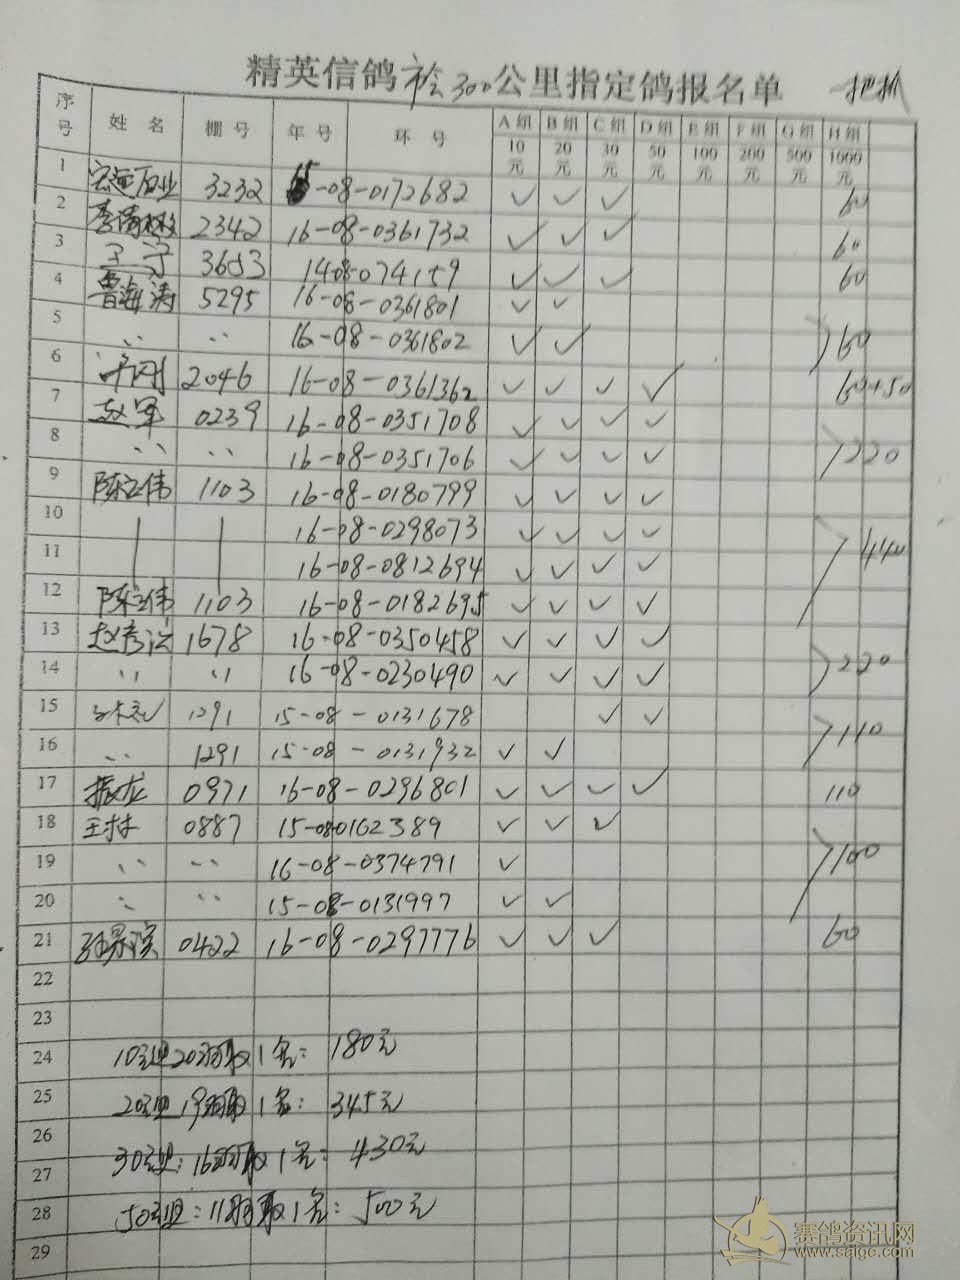 精英信鸽 市会300 公里指定鸽报名单 一把抓
序号 姓名 棚号 年号 环号 A组 B组 C组 D组 E组 F组 G组 H组
10元 20元 30元 50元 100元 200元 500元 1000元
1 3232 -08-0172682 ✓ ✓ ✓ 60
2 2342 16-08-0361732 ✓ ✓ ✓ 60
3 王宁 3653 1408-074159 ✓ ✓ ✓ 60
4 鲁海涛 5295 16-08-0361801 ✓ ✓
5 〃 〃 16-08-0361802 ✓ ✓ 60
6 2046 16-08-0361362 ✓ ✓ ✓ ✓ 60+50
7 赵军 0239 16-08-0351708 ✓ ✓ ✓ ✓
8 〃 〃 16-08-0351706 ✓ ✓ ✓ ✓ 220
9 陈立伟 1103 16-08-0180799 ✓ ✓ ✓ ✓
10 16-08-0298073 ✓ ✓ ✓ ✓
11 16-08-0812694 ✓ ✓ ✓ ✓ 440
12 陈立伟 1103 16-08-0182695 ✓ ✓ ✓ ✓
13 1678 16-08-0350458 ✓ ✓ ✓ ✓
14 〃 〃 16-08-0230490 ✓ ✓ ✓ ✓ 220
15 1291 15-08-0131678 ✓ ✓
16 〃 1291 15-08-0131932 ✓ ✓ 110
17 振龙 0971 16-08-0296801 ✓ ✓ ✓ ✓ 110
18 王林 0887 15-080162389 ✓ ✓ ✓
19 〃 〃 16-08-0374791 ✓ 100
20 〃 〃 15-08-0131997 ✓ ✓
21 孙景滨 0422 16-08-0297776 ✓ ✓ ✓ 60
22
23
24 10元组20羽取1名: 180元
25 20元组19羽取1名: 345元
26
27 30元组: 16羽取1名: 430元
28 50元组: 11羽取1名: 500元
29
赛鸽资讯网
www.saige.com